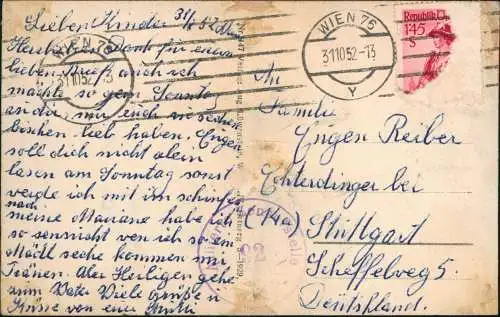 Lieben Kinder 31/10 52 Wien
Herzlichen Dank für euren
lieben Brief auch ich
machte so gern Sonntag
an dir, nur euch ein bischen
bischen lieb haben. Eugen
soll dich nicht alein
lasen am Sonntag sonst
werde ich mit im schimpfen
nach
meine Mariane habe ich
so sensucht wen ich so ein
Mädl sehe kommen mir
Tränen. Aler Heiligen gehe
zum Vater Viele grüße u
Küsse von eure Mutti
WIEN 75
31.10.52.-7.3
WIEN 75
31.10.52.-13
Y
Republik Ö
1.45
S
An
Familie
Eugen Reiber
Echterdinger bei
(14a) Stuttgart
Scheffelweg 5.
Deutschland.